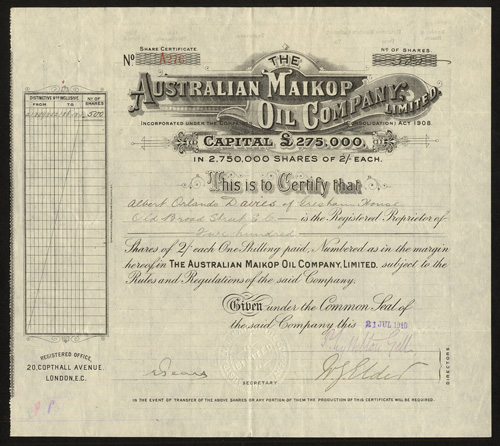 SHARE CERTIFICATE.
No
NO OF SHARES.
THE
AUSTRALIAN MAIKOP
OIL COMPANY, LIMITED.
INCORPORATED UNDER THE COMPANIES (CONSOLIDATION) ACT 1908.
CAPITAL £275,000,
IN 2,750,000 SHARES OF 2/- EACH.
DISTINCTIVE Nos INCLUSIVE.
FROM TO
No OF SHARES
500
This is to Certify that
Albert Orlando Davies of Gresham House
Old Broad Street E.C. is the Registered Proprietor of
Five hundred
Shares of 2/- each One Shilling paid, Numbered as in the margin
hereof, in THE AUSTRALIAN MAIKOP OIL COMPANY, LIMITED, subject to the
Rules and Regulations of the said Company.
Given under the Common Seal of
the said Company this 21 JUL 1910
REGISTERED OFFICE,
20, COPTHALL AVENUE,
LONDON, E.C.
SECRETARY
DIRECTORS.
IN THE EVENT OF TRANSFER OF THE ABOVE SHARES OR ANY PORTION OF THEM THE PRODUCTION OF THIS CERTIFICATE WILL BE REQUIRED.